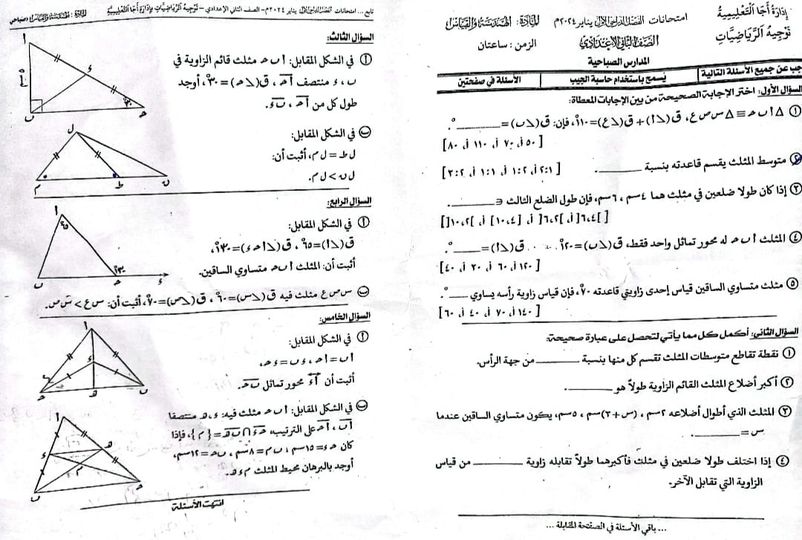 إدارة أجا التعليمية
توجيه الرياضيات
امتحانات الفصل الدراسي الأول يناير ٢٠٢٤م
الصف الثاني الإعدادي
المادة: الهندسة والقياس
الزمن: ساعتان
المدارس الصباحية
جب عن جميع الأسئلة التالية
يسمح باستخدام حاسبة الجيب
الأسئلة في صفحتين
السؤال الأول: اختر الإجابة الصحيحة من بين الإجابات المعطاة:
① △ أ ب حـ ≡ △ س ص ع، ق(∠أ) + ق(∠ع) = ١١٠°، فإن: ق(∠ب) = ـــــ°.
[ ٥٠ أ، ٧٠ أ، ١١٠ أ، ٨٠ ]
② متوسط المثلث يقسم قاعدته بنسبة ـــــ.
[ ٢:١ أ، ١:٢ أ، ١:١ أ، ٣:٢ ]
③ إذا كان طولا ضلعين في مثلث هما ٤ سم ، ٦ سم، فإن طول الضلع الثالث ∈ ـــــ
④ المثلث أ ب حـ له محور تماثل واحد فقط، ق(∠ب) = ١٢٠°، ق(∠أ) = ـــــ°.
[ ١٢٠ أ، ٦٠ أ، ٣٠ أ، ٤٠ ]
⑤ مثلث متساوي الساقين قياس إحدى زاويتي قاعدته ٧٠°، فإن قياس زاوية رأسه يساوي ـــــ°.
[ ١٤٠ أ، ٧٠ أ، ٤٠ أ، ٦٠ ]
السؤال الثاني: أكمل كل مما يأتي لتحصل على عبارة صحيحة:
① نقطة تقاطع متوسطات المثلث تقسم كل منها بنسبة ـــــ من جهة الرأس.
② أكبر أضلاع المثلث القائم الزاوية طولاً هو ـــــ.
③ المثلث الذي أطوال أضلاعه ٢ سم ، (س + ٢) سم ، ٥ سم، يكون متساوي الساقين عندما
س = ـــــ.
④ إذا اختلف طولا ضلعين في مثلث فأكبرهما طولاً تقابله زاوية ـــــ من قياس
الزاوية التي تقابل الآخر.
... باقي الأسئلة في الصفحة المقابلة ...
تابع ... امتحانات الفصل الدراسي الأول يناير ٢٠٢٤م - الصف الثاني الإعدادي - توجيه الرياضيات إدارة أجا التعليمية
السؤال الثالث:
أ في الشكل المقابل: أ ب حـ مثلث قائم الزاوية في
ب ، ء منتصف أحـ، ق(∠حـ) = ٣٠°، أوجد
طول كل من أحـ ، بء.
ب في الشكل المقابل:
ل ط = ل م، أثبت أن:
ل ن > ل م.
السؤال الرابع:
أ في الشكل المقابل:
ق(∠أ) = ٦٥°، ق(∠أحـء) = ١٣٠°،
أثبت أن: المثلث أ ب حـ متساوي الساقين.
ب س ص ع مثلث فيه ق(∠س) = ٦٠°، ق(∠ص) = ٧٠°، أثبت أن: س ع > س ص.
السؤال الخامس:
أ في الشكل المقابل:
أ ب = أ حـ ، ء ب = ء حـ،
أثبت أن أء محور تماثل بحـ.
ب في الشكل المقابل: أ ب حـ مثلث فيه: ء ، هـ منتصفا
أب ، أحـ على الترتيب، حـء ∩ بهـ = {م}، فإذا
كان حـء = ١٥ سم ، ب م = ٨ سم ، ب حـ = ١٢ سم،
أوجد بالبرهان محيط المثلث م ء هـ.
انتهت الأسئلة